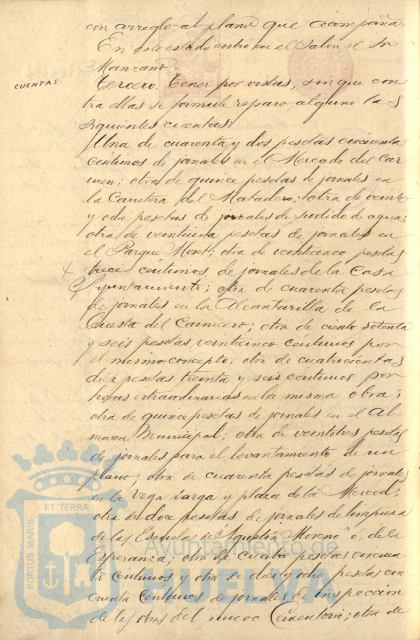 con arreglo al plano que acompaña.
En este estado entró en el Salon el Sr
Manzano.
CUENTAS.
Tercero. Tener por vistas, sin que con
tra ellas se formule reparo alguno las
siguientes cuentas:
Una de cuarenta y dos pesetas cincuenta
centimos de jornales en el Mercado del Car
men; otra de quince pesetas de jornales en
la Carretera del Matadero; otra de veinte
y ocho pesetas de jornales de surtido de agua;
otra de pesetas de jornales en
el Parque otra de veinticinco pesetas
trece centimos, de jornales de la Casa
Ayuntamiento; otra de cuarenta pesetas
de jornales en la Alcantarilla de la
Cuesta del Carnicero; otra de ciento setenta
y seis pesetas veinticinco centimos por
el mismo concepto; otra de cuatrocientas
diez pesetas treinta y seis centimos por
horas extraordinarias en la misma obra;
otra de quince pesetas de jornales en el Al
macen Municipal; otra de veintitres pesetas
de jornales para el levantamiento de un
plano; otra de cuarenta pesetas de jornales
en la Vega larga y plaza de la Merced;
otra de doce pesetas de jornales de limpieza
de las Escuelas de Agustin Moreno o de la
Esperanza; otra de cuatro pesetas cincuen
ta centimos y otra de diez y ocho pesetas cin
cuenta centimos de jornales de inspección
de las obras del nuevo Cementerio; otra de
ET TERRA
PORTUS MARIS
Ayuntamiento de